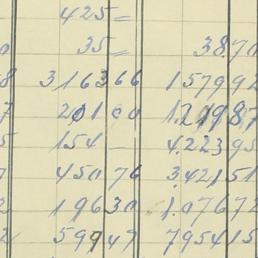 425 =
0 35 = 38.70
8 3163 66 1579 92
7 201 00 1.219 87
5 154 — 4.223 95
7 450 76 3.421 51
196 30 1.076 72
2 599 47 7954 15